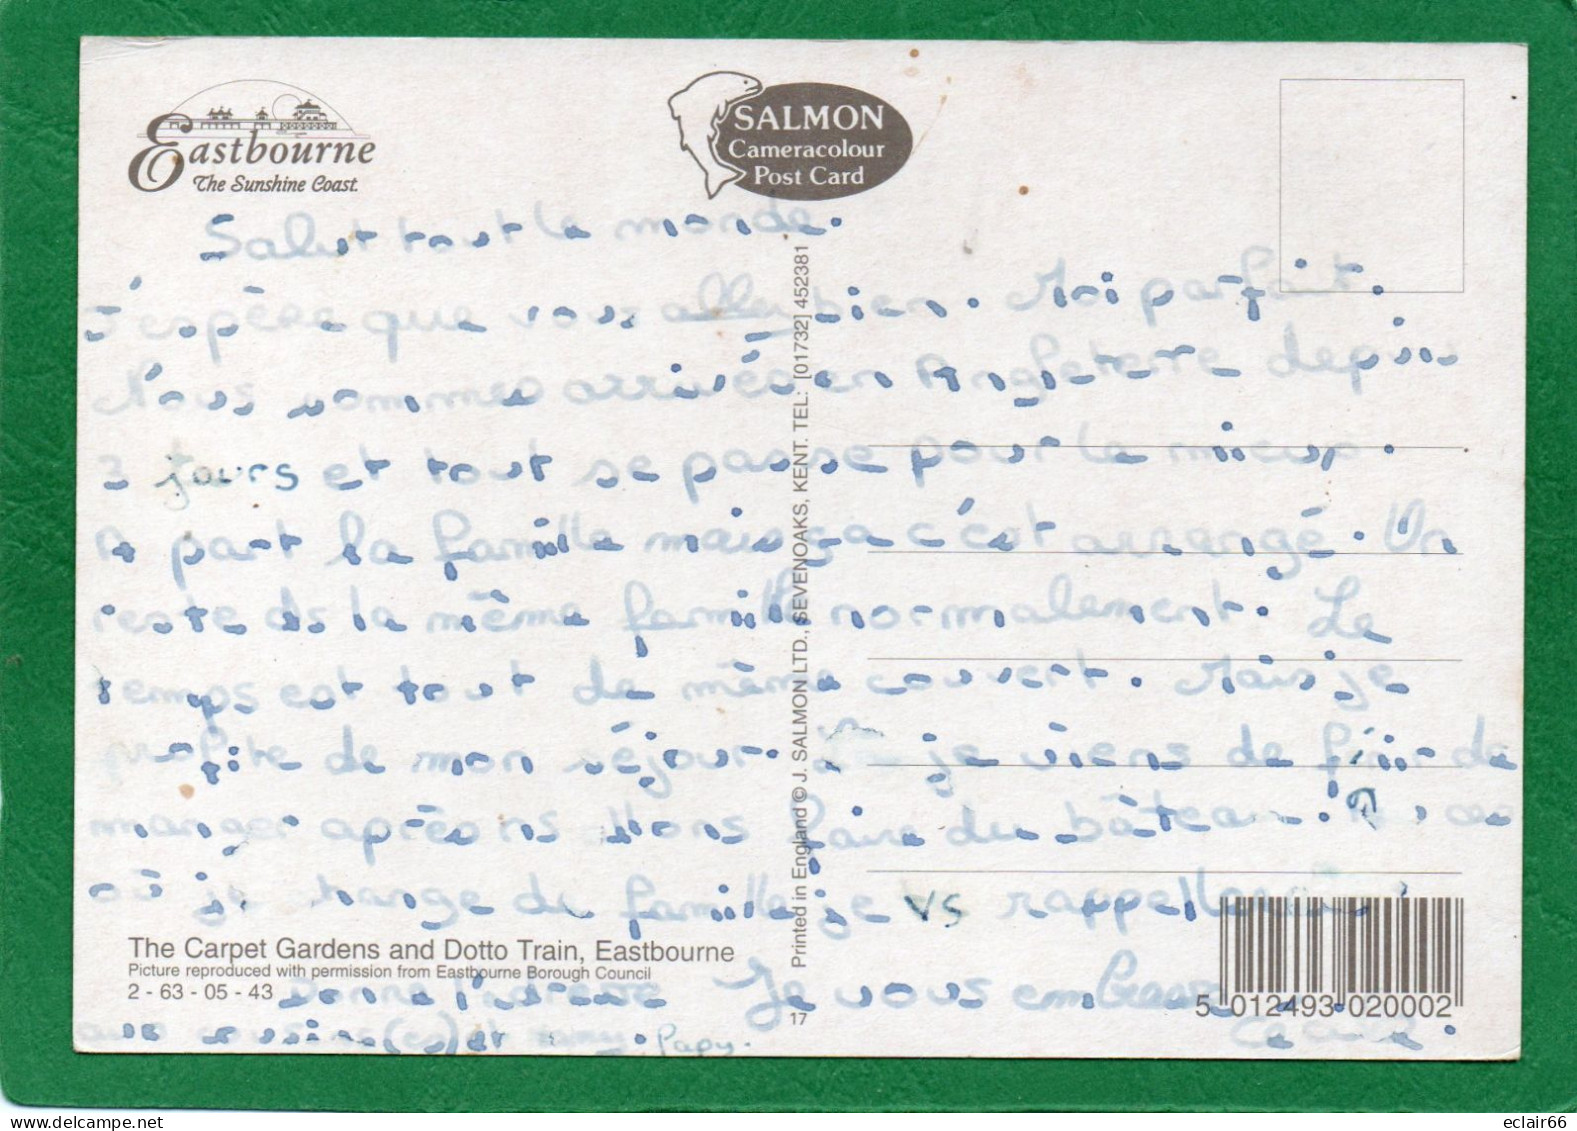 Eastbourne
The Sunshine Coast.
SALMON
Cameracolour
Post Card
Salut tout le monde.
J'espère que vous allez bien. Moi parfait.
Nous sommes arrivés en Angleterre depuis
3 jours et tout se passe pour le mieux.
A part la famille mais ça c'est arrangé. On
reste ds la même famille normalement. Le
temps est tout de même couvert. Mais je
profite de mon séjour. je viens de finir de
manger après ns allons faire du bâteau. Au cas
où je change de famille je vs rappellerais.
Donne l'adresse Je vous embrasse
aux cousins(es) et mamy. Papy.
Cécile.
The Carpet Gardens and Dotto Train, Eastbourne
Picture reproduced with permission from Eastbourne Borough Council
2 - 63 - 05 - 43
Printed in England © J. SALMON LTD., SEVENOAKS, KENT. TEL: [01732] 452381
17
5 012493 020002
eclair66